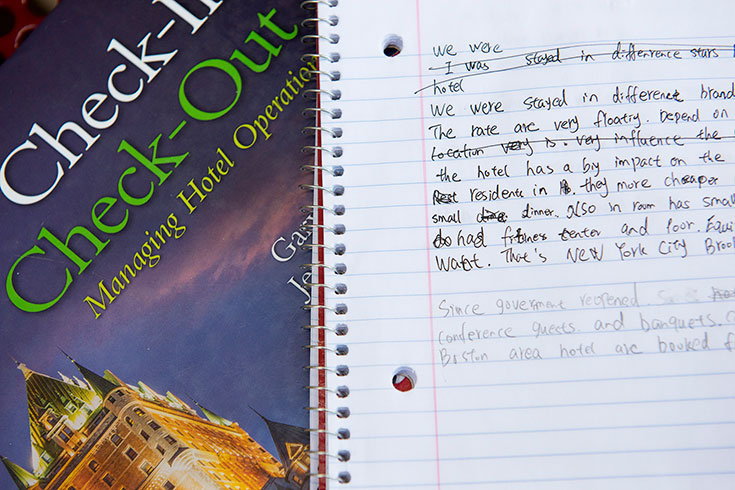 Check-In
Check-Out
Managing Hotel Operation
Ga
Je
we were
I was stayed in diffenrence stars
hotel
We were stayed in different brand
The rate are very floatry. Depend on
Location very is very influence the
the hotel has a big impact on the
residents in they more cheaper
small dinner. Also in room has small
had fitness center and poor. Equi
Want. That's NEW York City Brook
Since goverment reopened.
conference guests. and banquets.
Boston area hotel are booked f